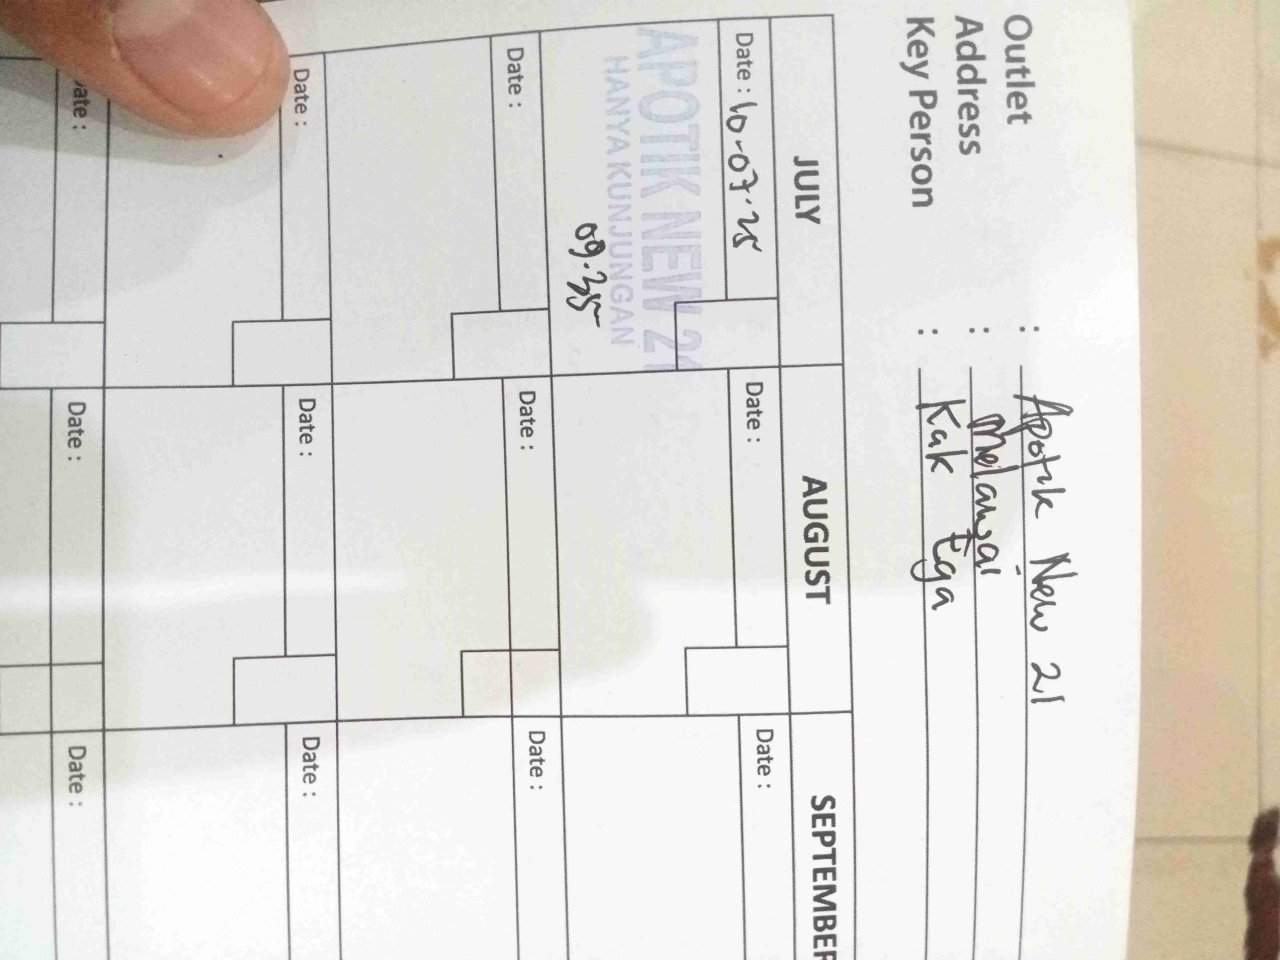 Outlet : Apotik New 21
Address : Melawai
Key Person : Kak Ega
JULY AUGUST SEPTEMBER
Date : 10-07-25 Date : Date :
APOTIK NEW 21
HANYA KUNJUNGAN
09.35
Date : Date : Date :
Date : Date : Date :
Date : Date : Date :